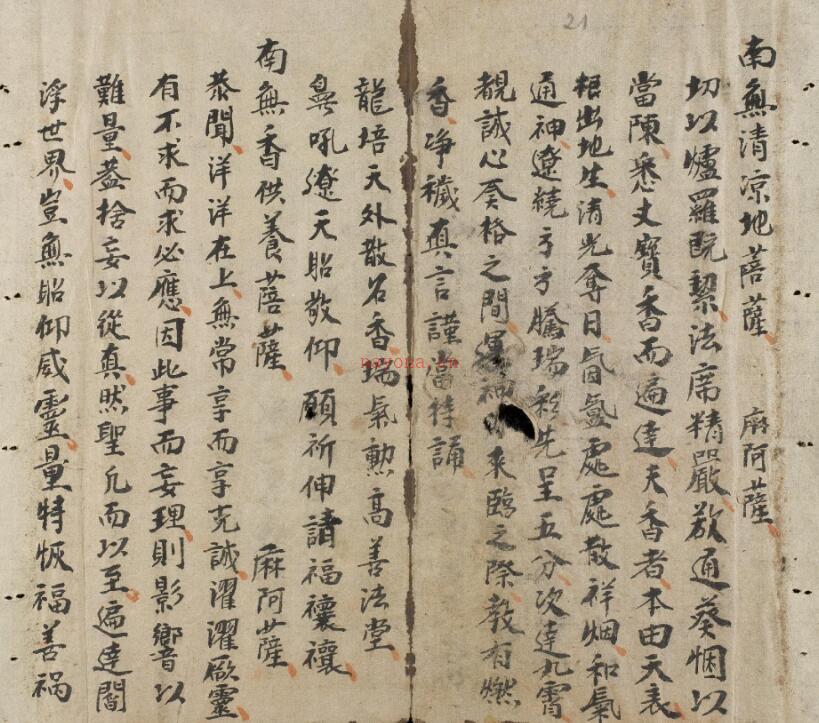 21
南無清凉地菩薩 麻阿薩
切以爐羅既潔法席精嚴欲通葵悃以
當陳悉丈寶香而遍達夫香者本由天表
根出地生清光奪日氤氳處處散祥烟和氣
通神遼繞方方騰瑞彩先呈五分次達九霄
覩誠心奚格之間 神 來臨之際教有燃
香净穢真言謹當持誦
龍培天外散名香瑞氣勲高善法堂
鼻吼遼天昭敬仰願祈伸請福禳禳
南無香供養菩薩 麻阿薩
恭聞洋洋在上無常享而享克誠濯濯厥靈
有不求而求必應因此事而妄理則影響以
難量蓋捨妄以從真然聖凢而以至遍達閻
浮世界豈無昭仰威靈量特恢福善禍
noyona.cn